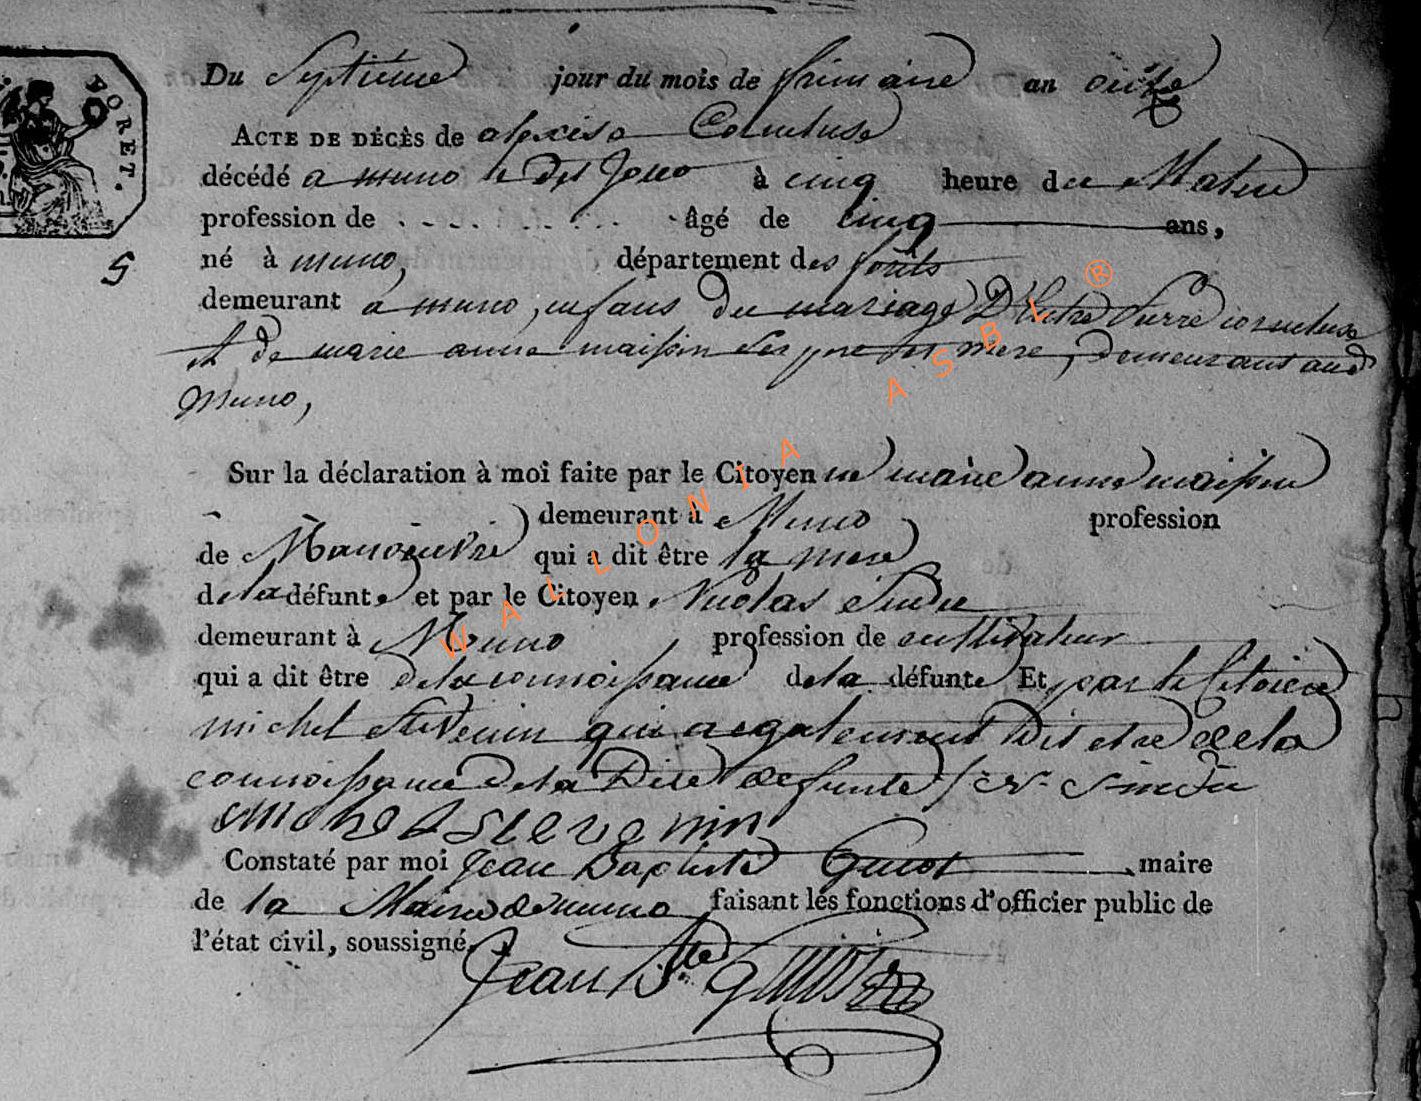 FORET.
Du Septieme jour du mois de frimaire an onze
ACTE DE DÉCÈS de alexiso Corneluse
décédé a muno le dit Jour à cinq heure du Matin
profession de . . . . . . . . âgé de cinq ans,
5
né à muno, département des forêts
demeurant a muno, enfans du mariage D'Entre Pierre corneluse
et de marie anne maissin ses pere et mere, demeurant aud
Muno,
Sur la déclaration à moi faite par le Citoyenne marie anne maissin
demeurant à Muno profession
de Manoeuvre qui a dit être la mere
de la défunte et par le Citoyen Nicolas
demeurant à Muno profession de cultivateur
qui a dit être de la connoissance de la défunte Et par le Citoien
michel Stevenin qui a egalement Dit etre de la
connoissance de la Dite defunte
michel stevenin
Constaté par moi Jean Baptiste Guiot maire
de la Mairie de muno faisant les fonctions d'officier public de
l'état civil, soussigné.
Jean Bte Guiot
WALLONIA ASBL ®